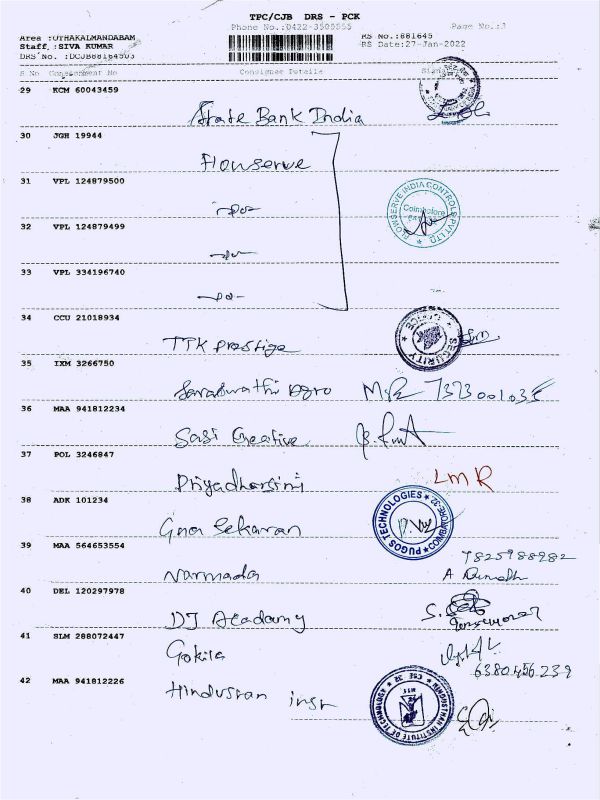 TPC/CJB DRS - PCK
Phone No.:0422-3505555 Page No.:3
Area :OTHAKALMANDABAM RS No.:881645
Staff :SIVA KUMAR RS Date:27-Jan-2022
DRS No. :DCJB88164503
S No Consignment No Consignee Details
29 KCM 60043459
State Bank India
30 JGH 19944
Flowserve
31 VPL 124879500
-do-
FLOWSERVE INDIA CONTROLS PVT LTD
Coimbatore
32 VPL 124879499
-do-
33 VPL 334196740
-do-
34 CCU 21018934
TTK prestige
SECURITY OFFICE
35 IXM 3266750
Saraswathi Agro 7373001035
36 MAA 941812234
Sasi Creative
37 POL 3246847
Priyadharsini LMR
38 ADK 101234
Gna Sekaran
PUGOS TECHNOLOGIES COIMBATORE-32
39 MAA 564653554
7825988982
Narmada
40 DEL 120297978
DJ Academy
41 SLM 288072447
Gokila
6380456239
42 MAA 941812226
Hindustan inst
HINDUSTHAN INSTITUTE OF TECHNOLOGY